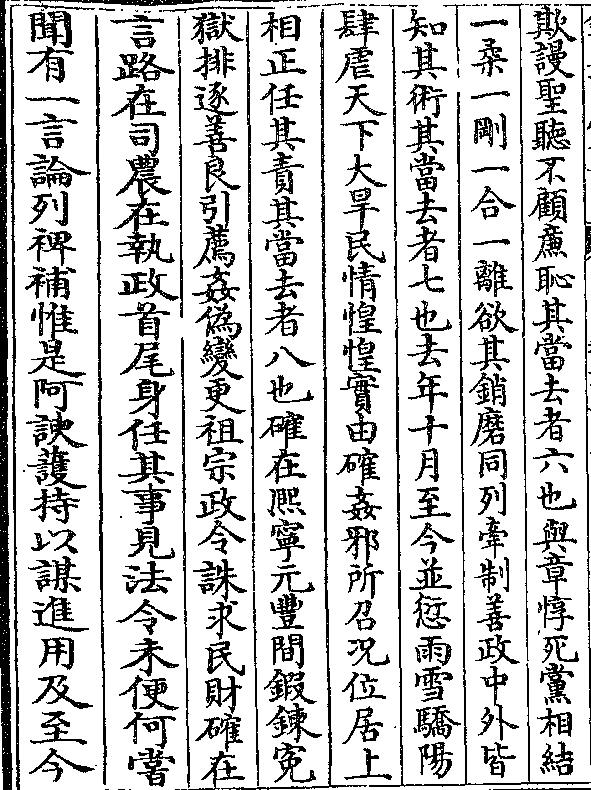 欺謾聖聽不顧廉恥其當去者六也與章惇死黨相結
一柔一剛一合一離欲其銷磨同列牽制善政中外皆
知其術其當去者七也去年十月至今並愆雨雪驕陽
肆虐天下大旱民情惶惶實由確姦邪所召况位居上
相正任其責其當去者八也確在熈寧元豐間鍜鍊寃
獄排逐善良引薦姦偽變更祖宗政令誅求民財確在
言路在司農在執政首尾身任其事見法令未便何嘗
聞有一言論列裨補惟是阿諛護持以謀進用及至今